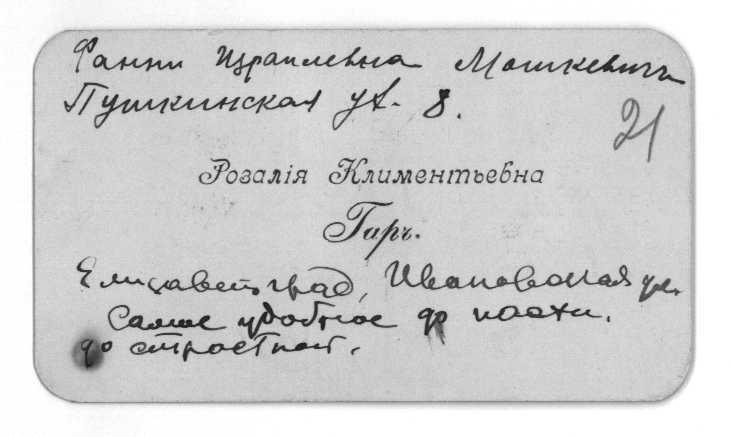 Фанни Израилевна Мошкевичъ
Пушкинская ул. 8.
21
Розалія Климентьевна
Гаръ.
Елисаветград, Ивановская ул.
Самое удобное до пасхи.
до страстной.